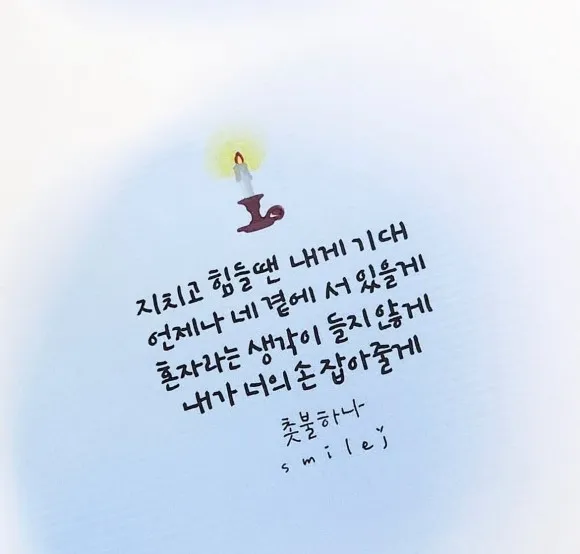 지치고 힘들땐 내게 기대
언제나 네 곁에 서 있을게
혼자라는 생각이 들지 않게
내가 너의 손 잡아줄게
촛불하나
smilej